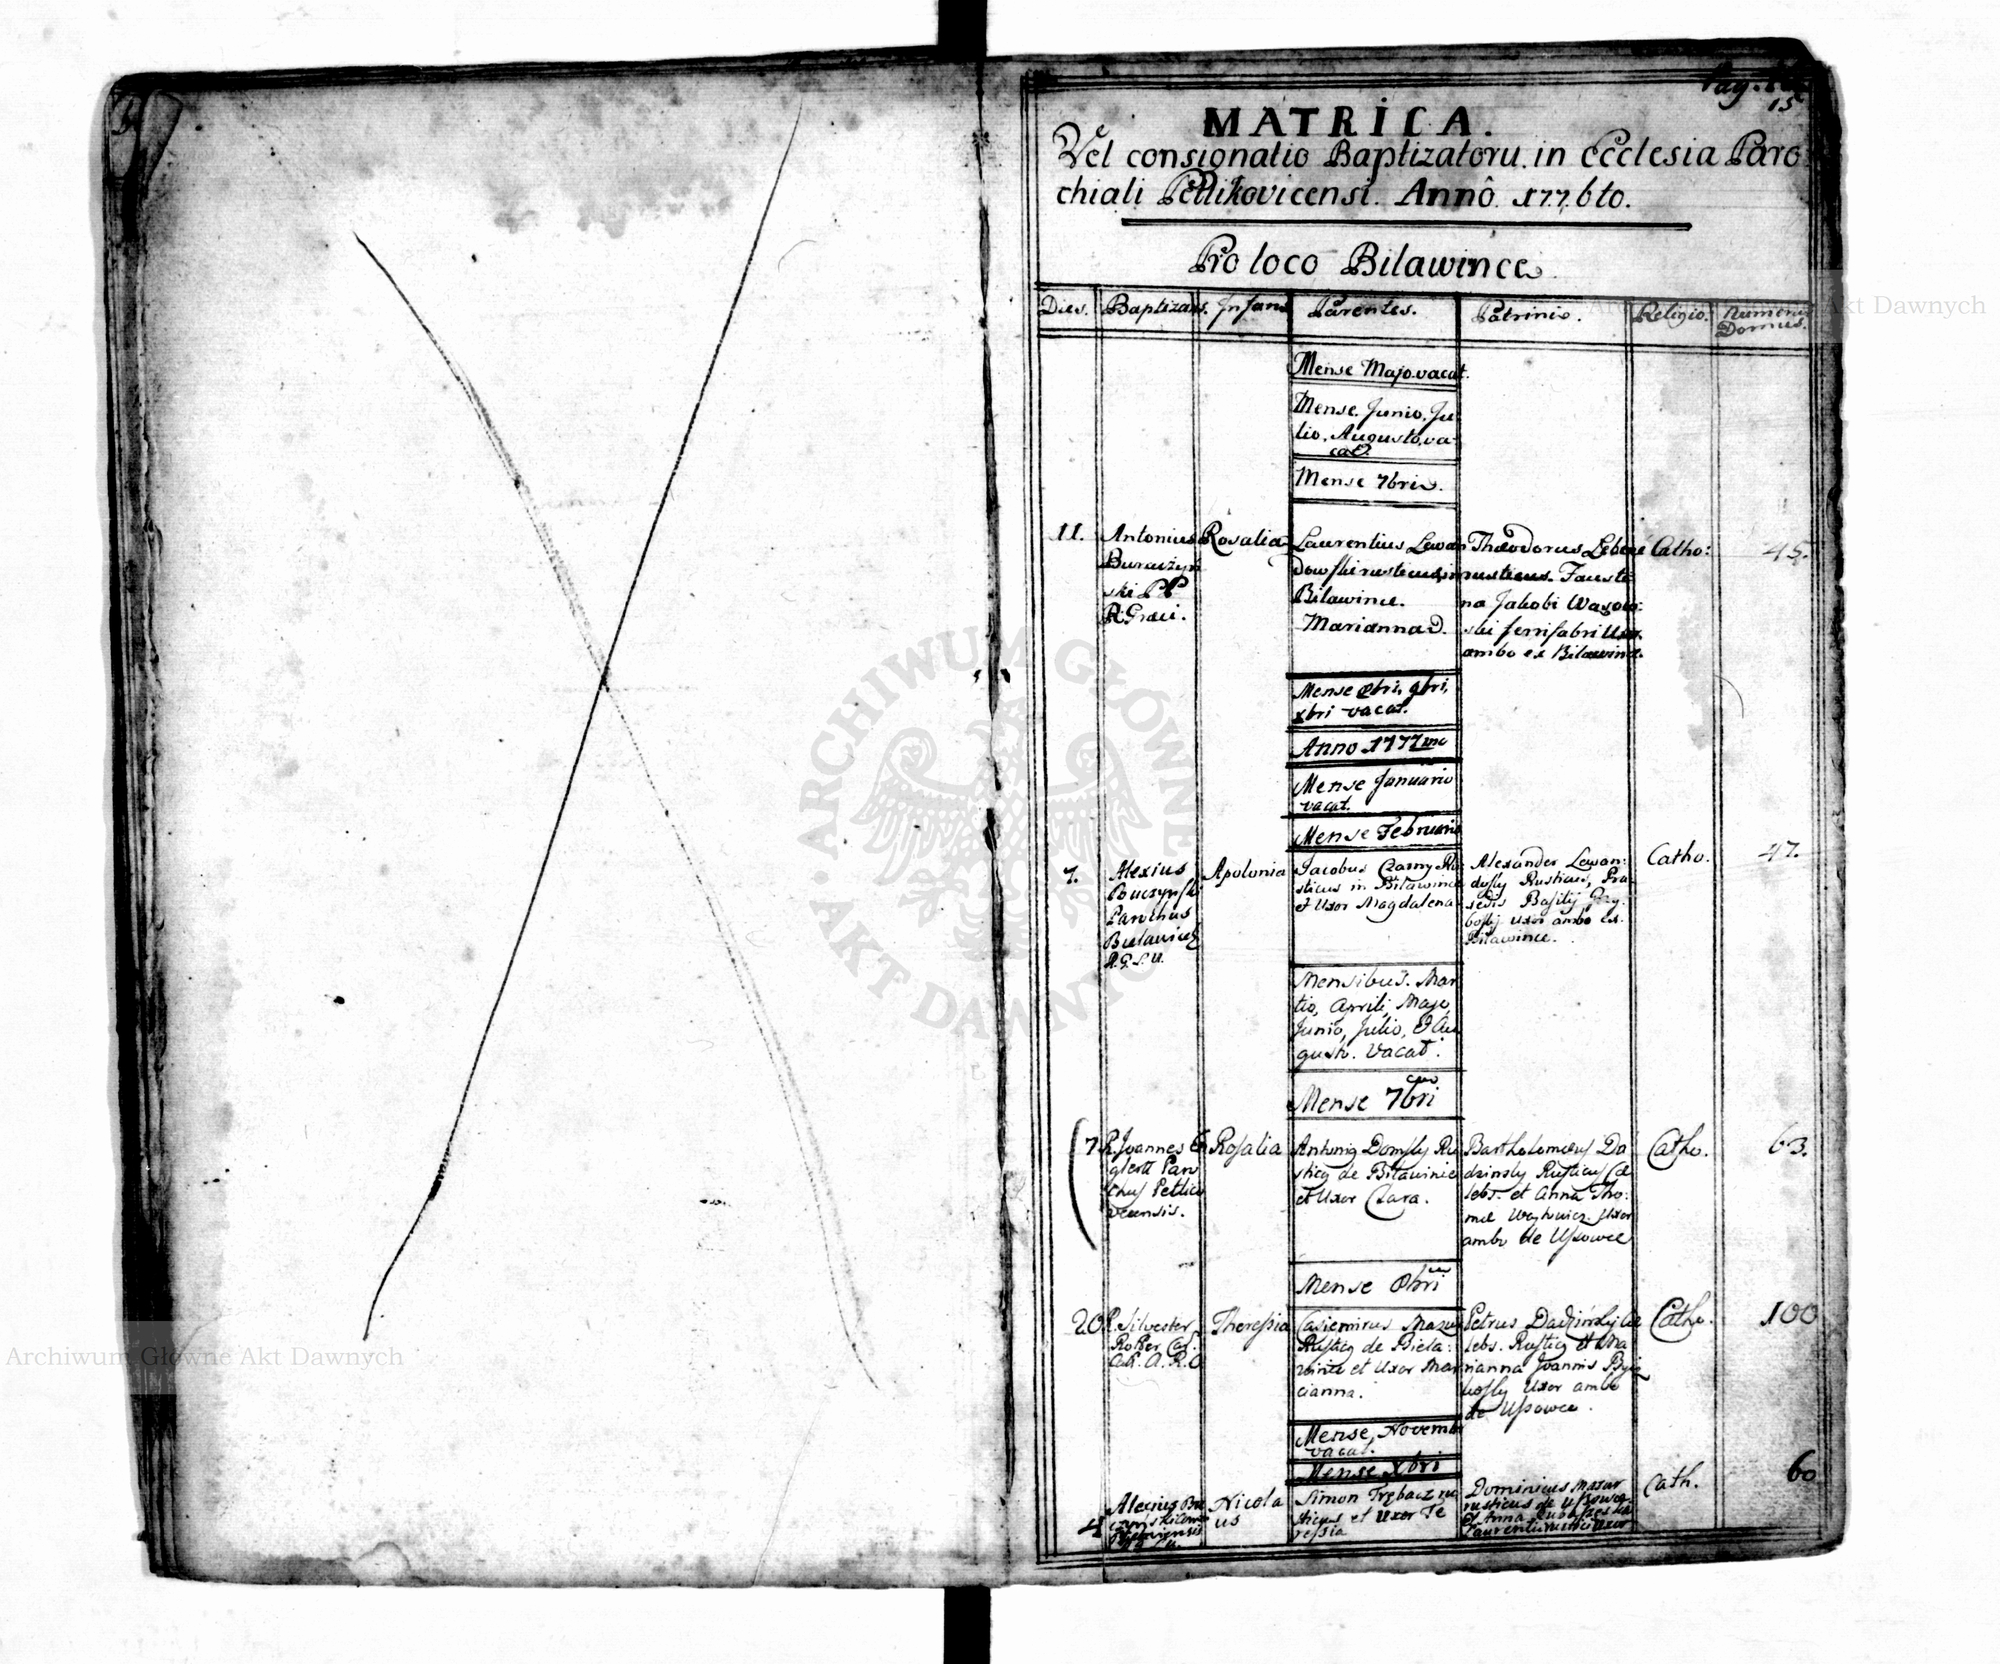 Pag.
15
MATRICA.
Vel consignatio Baptizatoru. in Ecclesia Paro
chiali Petlikovicensi. Annô. 177.6to.
Pro loco Bilawince
Dies.
Baptizans.
Infans
Parentes.
Patrinio.
Religio.
Numerus
Domus.
Mense Majo vacat.
Mense. Junio. Ju
lio. Augusto. va-
cat.
Mense 7bris.
11.
Antonius
ski PP
R. Graeci.
Rosalia
Laurentius Lewan
dowski rusticus in
Bilawince.
Marianna
Theodorus
rusticus. Fausti
na Jakobi
ski ferrifabri Uxor.
ambo ex Bilawince.
Catho:
45.
Mense 8bri, 9bri,
xbri vacat.
Anno 1777mo
Mense Januario
vacat.
Mense Februario
7.
Alexius
Buczynski
Parochus
R.G.
Apolonia
Jacobus Czarny Ru
sticus in Bilawince
et Uxor Magdalena
Alexander Lewan:
dosky Rusticus, Pra
xedis Basilij
uxor ambo ex
Bilawince.
Catho.
47.
Mensibus. Mar
tio, Aprili, Majo,
Junio, Julio, et Au
gusto. Vacat.
Mense 7bri
7.
R. Joannes
Paro
chus Petlico
vicensis.
Rosalia
Antonius Domsky Ru
sticus de Bilawince
et Uxor Clara.
Bartholomeus Da
dzinsky Rusticus Cæ
lebs. et Anna Tho:
mæ Uxor
ambo de Usowce
Catho.
63.
Mense 8bri
20
R. Silvester
Theressia
Casiemirus Mazur
Rusticus de Biela:
wince et Uxor Mar
cianna.
Petrus Dadzinsky Cæ
lebs. Rusticus et Ma
rianna Joannis
Uxor ambo
de Usowce.
Catho.
100
Mense Novembr
vacat.
Mense xbri
4
Alexius Bu
Nicola
us
Simon Trębacz ru
sticus et Uxor Te
ressia
Dominicus Mazur
rusticus de Usowce
et Anna
Laurentii rustici Uxor
Cath.
60
ARCHIWUM GŁÓWNE
AKT DAWNYCH
Archiwum Główne Akt Dawnych
Archiwum Główne Akt Dawnych